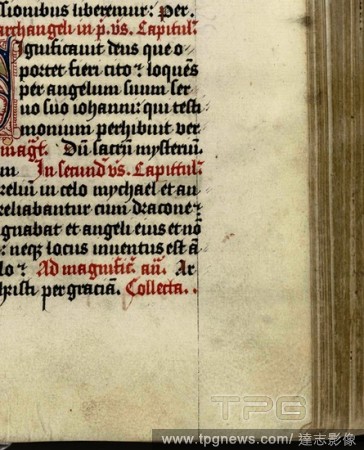 ssionibus liberemur: Per.
archangeli in p. vs. Capitul'
Significauit deus que o
portet fieri cito ⁊ loquēs
per angelum suum ser
uo suo iohanni: qui testi
monium perhibuit ver
magt. Dū sacrū mysteriū.
m In secund' vs. Capittul'
reliū in celo mychael et an
reliabantur cum dracone ⁊
gnabat et angeli eius et nō
: neqꝫ locus inuentus est ā
lo ⁊ Ad magnific. añ. Ar
christi per graciā. Collecta.
TPG
www.tpgnews.com/ 達志影像